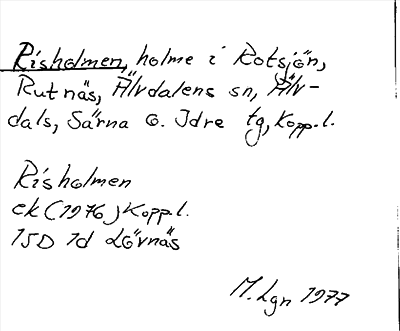 Risholmen, holme i Rotsjön,
Rutnäs, Älvdalens sn, Älv-
dals, Särna o. Idre tg, Kopp.l.
Risholmen
ek (1976) Kopp.l.
15D 1d Lövnäs
M. Lgn 1977